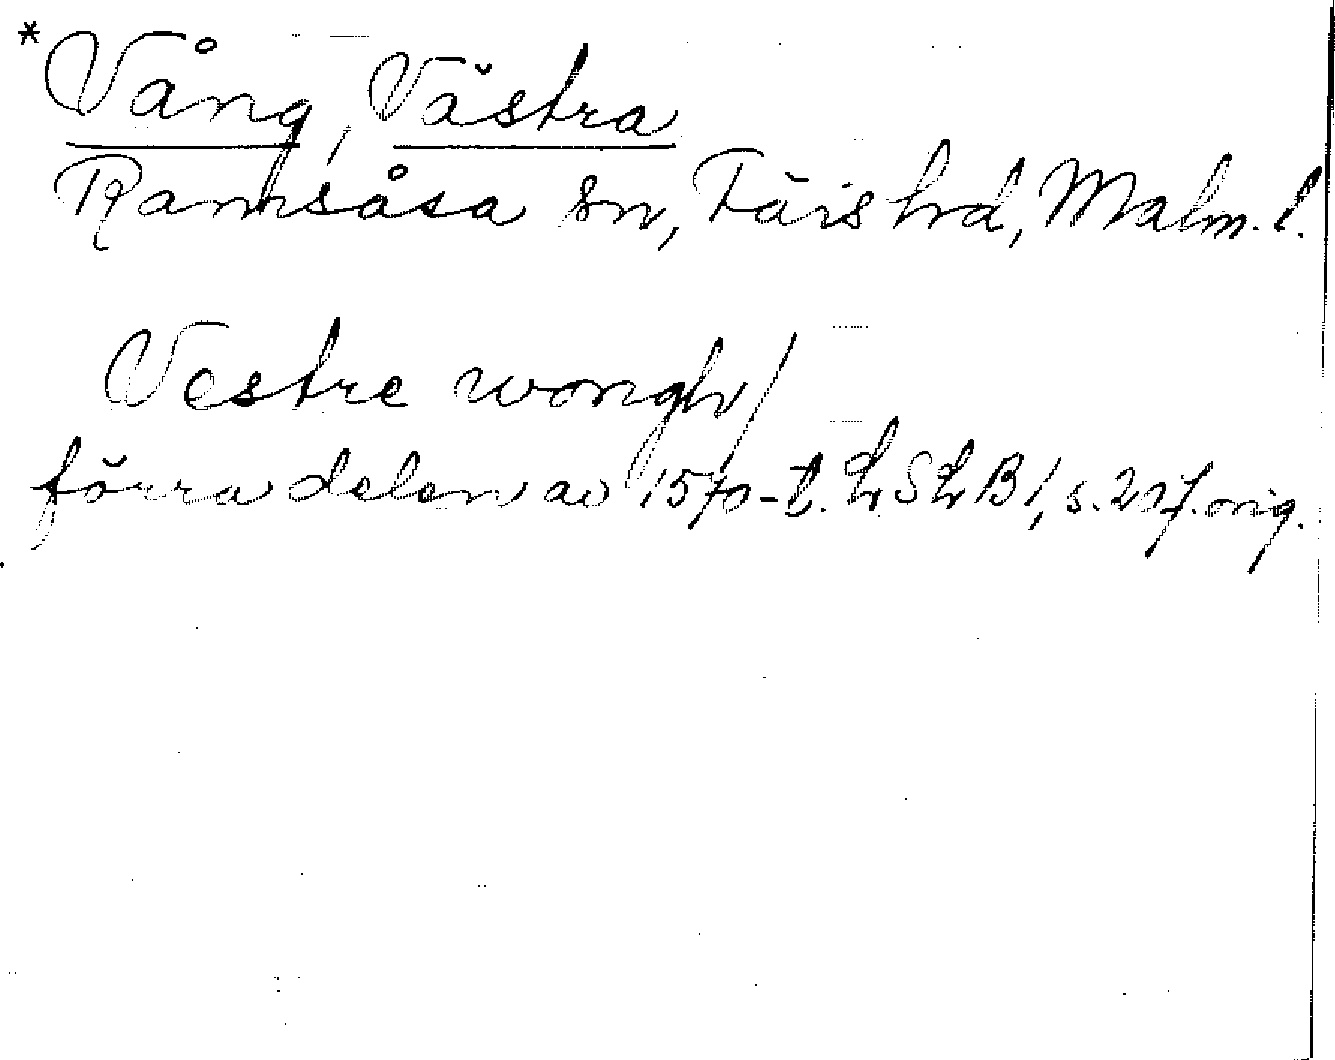 *Vång, Västra
Ramsåsa sn, Färs hrd, Malm. l.
Vestre wongh/
förra delen av 1570-t. LSLB 1, s. 217. orig.